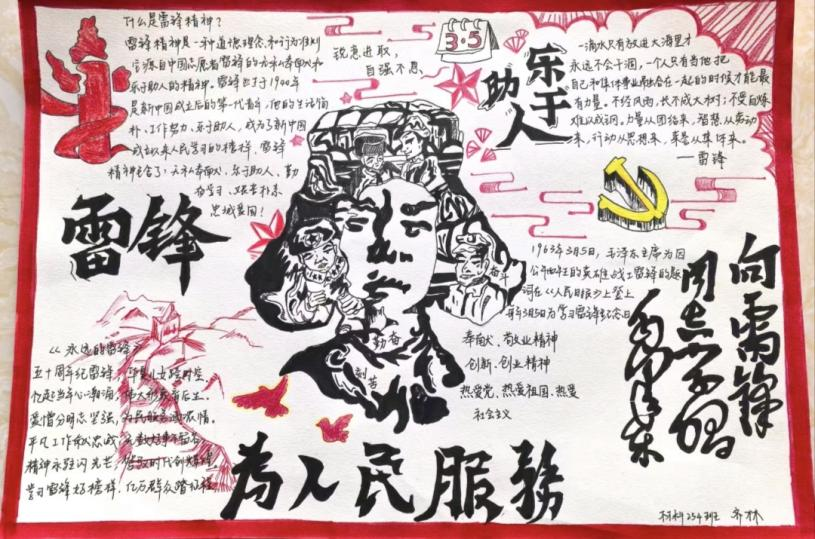 什么是雷锋精神？
雷锋精神是一种道德理念和行为准则
它源自中国志愿者雷锋的无私奉献和
乐于助人的精神。雷锋出生于1940年
是新中国成立后的第一代青年，他的生活简
朴、工作努力、乐于助人，成为了新中国
成立以来人民学习的榜样，雷锋
精神包含了：无私奉献、乐于助人、勤
奋学习、艰苦朴素
忠诚爱国！
锐意进取，
自强不息，
3·5
乐于
助人
一滴水只有放进大海里才
永远不会干涸，一个人只有当他把
自己和集体事业融合在一起的时候才能最
有力量。不经风雨，长不成大树；不受百炼
难以成钢。力量从团结来，智慧从劳动
来，行动从思想来，荣誉从集体来。
—雷锋
雷锋
奋斗
勤奋
刻苦
1963年3月5日，毛泽东主席为因
公牺牲的英雄战士雷锋的题
词在《人民日报》上登上
每年3月5日为学习雷锋纪念日
奉献、敬业精神
创新、创业精神
热爱党、热爱祖国、热爱
社会主义
向雷锋
同志学习
毛泽东
《永远的雷锋》
五十周年纪雷锋，华夏儿女
忆起当年心潮涌，伟大形象
爱憎分明志坚强，为民服务
平凡工作献忠诚，
精神永跃闪光芒，
学习雷锋好榜样，亿万群众踏征程
為人民服務
材料254班 齐林